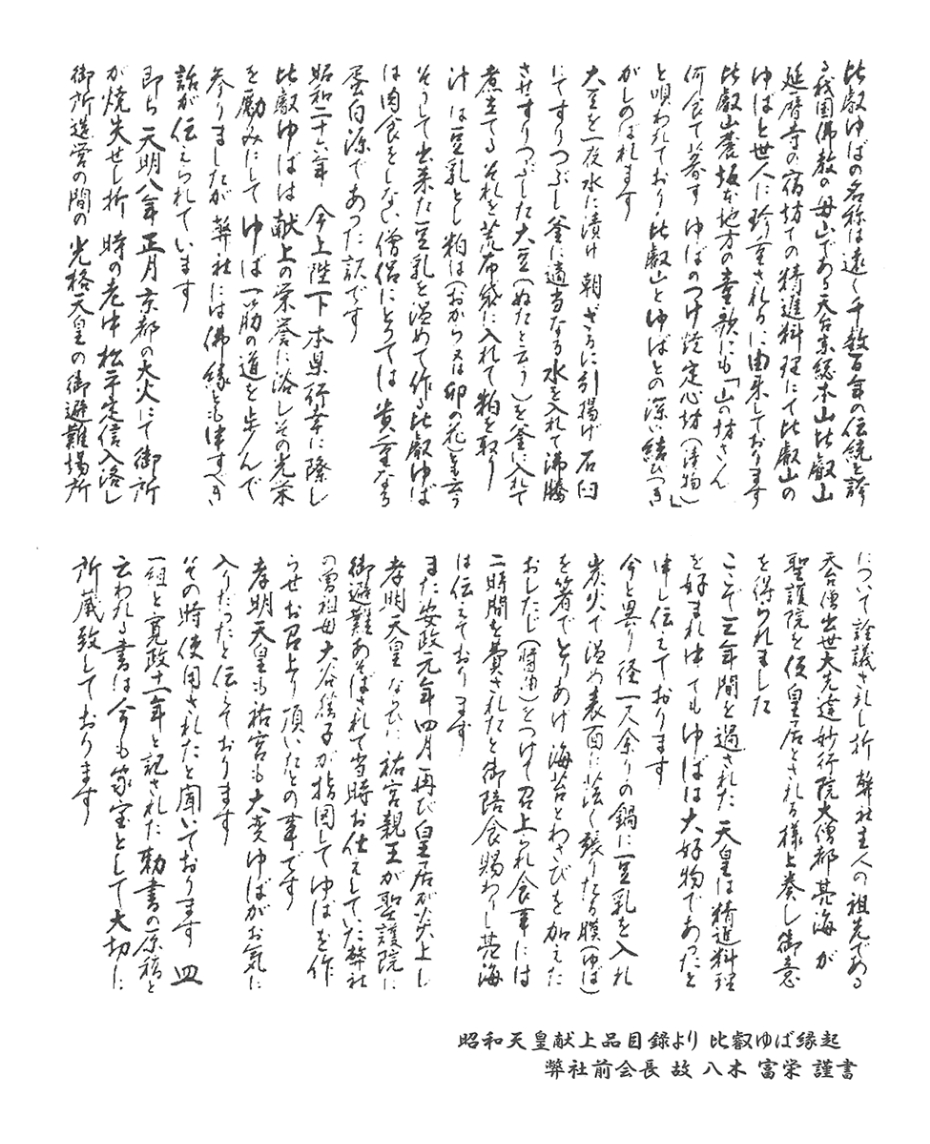 比叡ゆばの名称は遠く千数百年の伝統を誇
る我国佛教の母山である天台宗総本山比叡山
延暦寺の宿坊での精進料理にて比叡山の
ゆばと世人に珍重されるに由来しております
比叡山麓坂本地方の童歌にも「山の坊さん
何食て暮す ゆばのつけ焼定心坊（漬物）」
と唄われており比叡山とゆばとの深い結びつき
がしのばれます
大豆を一夜水に漬け 朝ざるに引揚げ 石臼
にてすりつぶし釜に適当なる水を入れて沸騰
させすりつぶした大豆（ぬたと云う）を釜に入れて
煮立てる それを荒布袋に入れて粕を取り
汁は豆乳とし粕は（おから又は卯の花）と云う
そうして出来た豆乳を温めて作る比叡ゆば
は肉食をしない僧侶にとっては貴重なる
蛋白源であった訳です
昭和二十六年 今上陛下本県行幸に際し
比叡ゆばは献上の栄誉に浴しその光栄
を励みにして ゆば一筋の道を歩んで
参りましたが 弊社には佛縁とも申すべき
話が伝えられています
即ち 天明八年正月京都の大火にて御所
が焼失せし折 時の老中松平定信入洛し
御所造営の間の光格天皇の御避難場所
について詮議されし折 弊社主人の祖先である
天台僧出世大先達妙行院大僧都甚海が
聖護院を仮皇居とされる様上奏し御意
を得られました
ここで三年間を過された天皇は精進料理
を好まれ中でもゆばは大好物であったと
申し伝えております
今と異り径一人余りの鍋に豆乳を入れ
炭火で温め表面に薄く張りたる膜（ゆば）
を箸でとりあげ海苔とわさびを加えた
おしたじ（醤油）をつけて召上られ食事には
二時間を費されたと御陪食賜わりし甚海
は伝えております
また安政元年四月再び皇居が炎上し
孝明天皇ならびに祐宮親王が聖護院に
御避難あそばされて当時お仕えしていた弊社
の曽祖母大谷 子が指図してゆばを作
らせお召上り頂いたとの事です
孝明天皇も祐宮も大変ゆばがお気に
入りだったと伝えております
その時使用されたと聞いております 皿
一組と寛政十一年と記された勅書の原稿と
云われる書は今も家宝として大切に
所蔵致しております
昭和天皇献上品目録より 比叡ゆば縁起
弊社前会長 故 八木 富栄 謹書